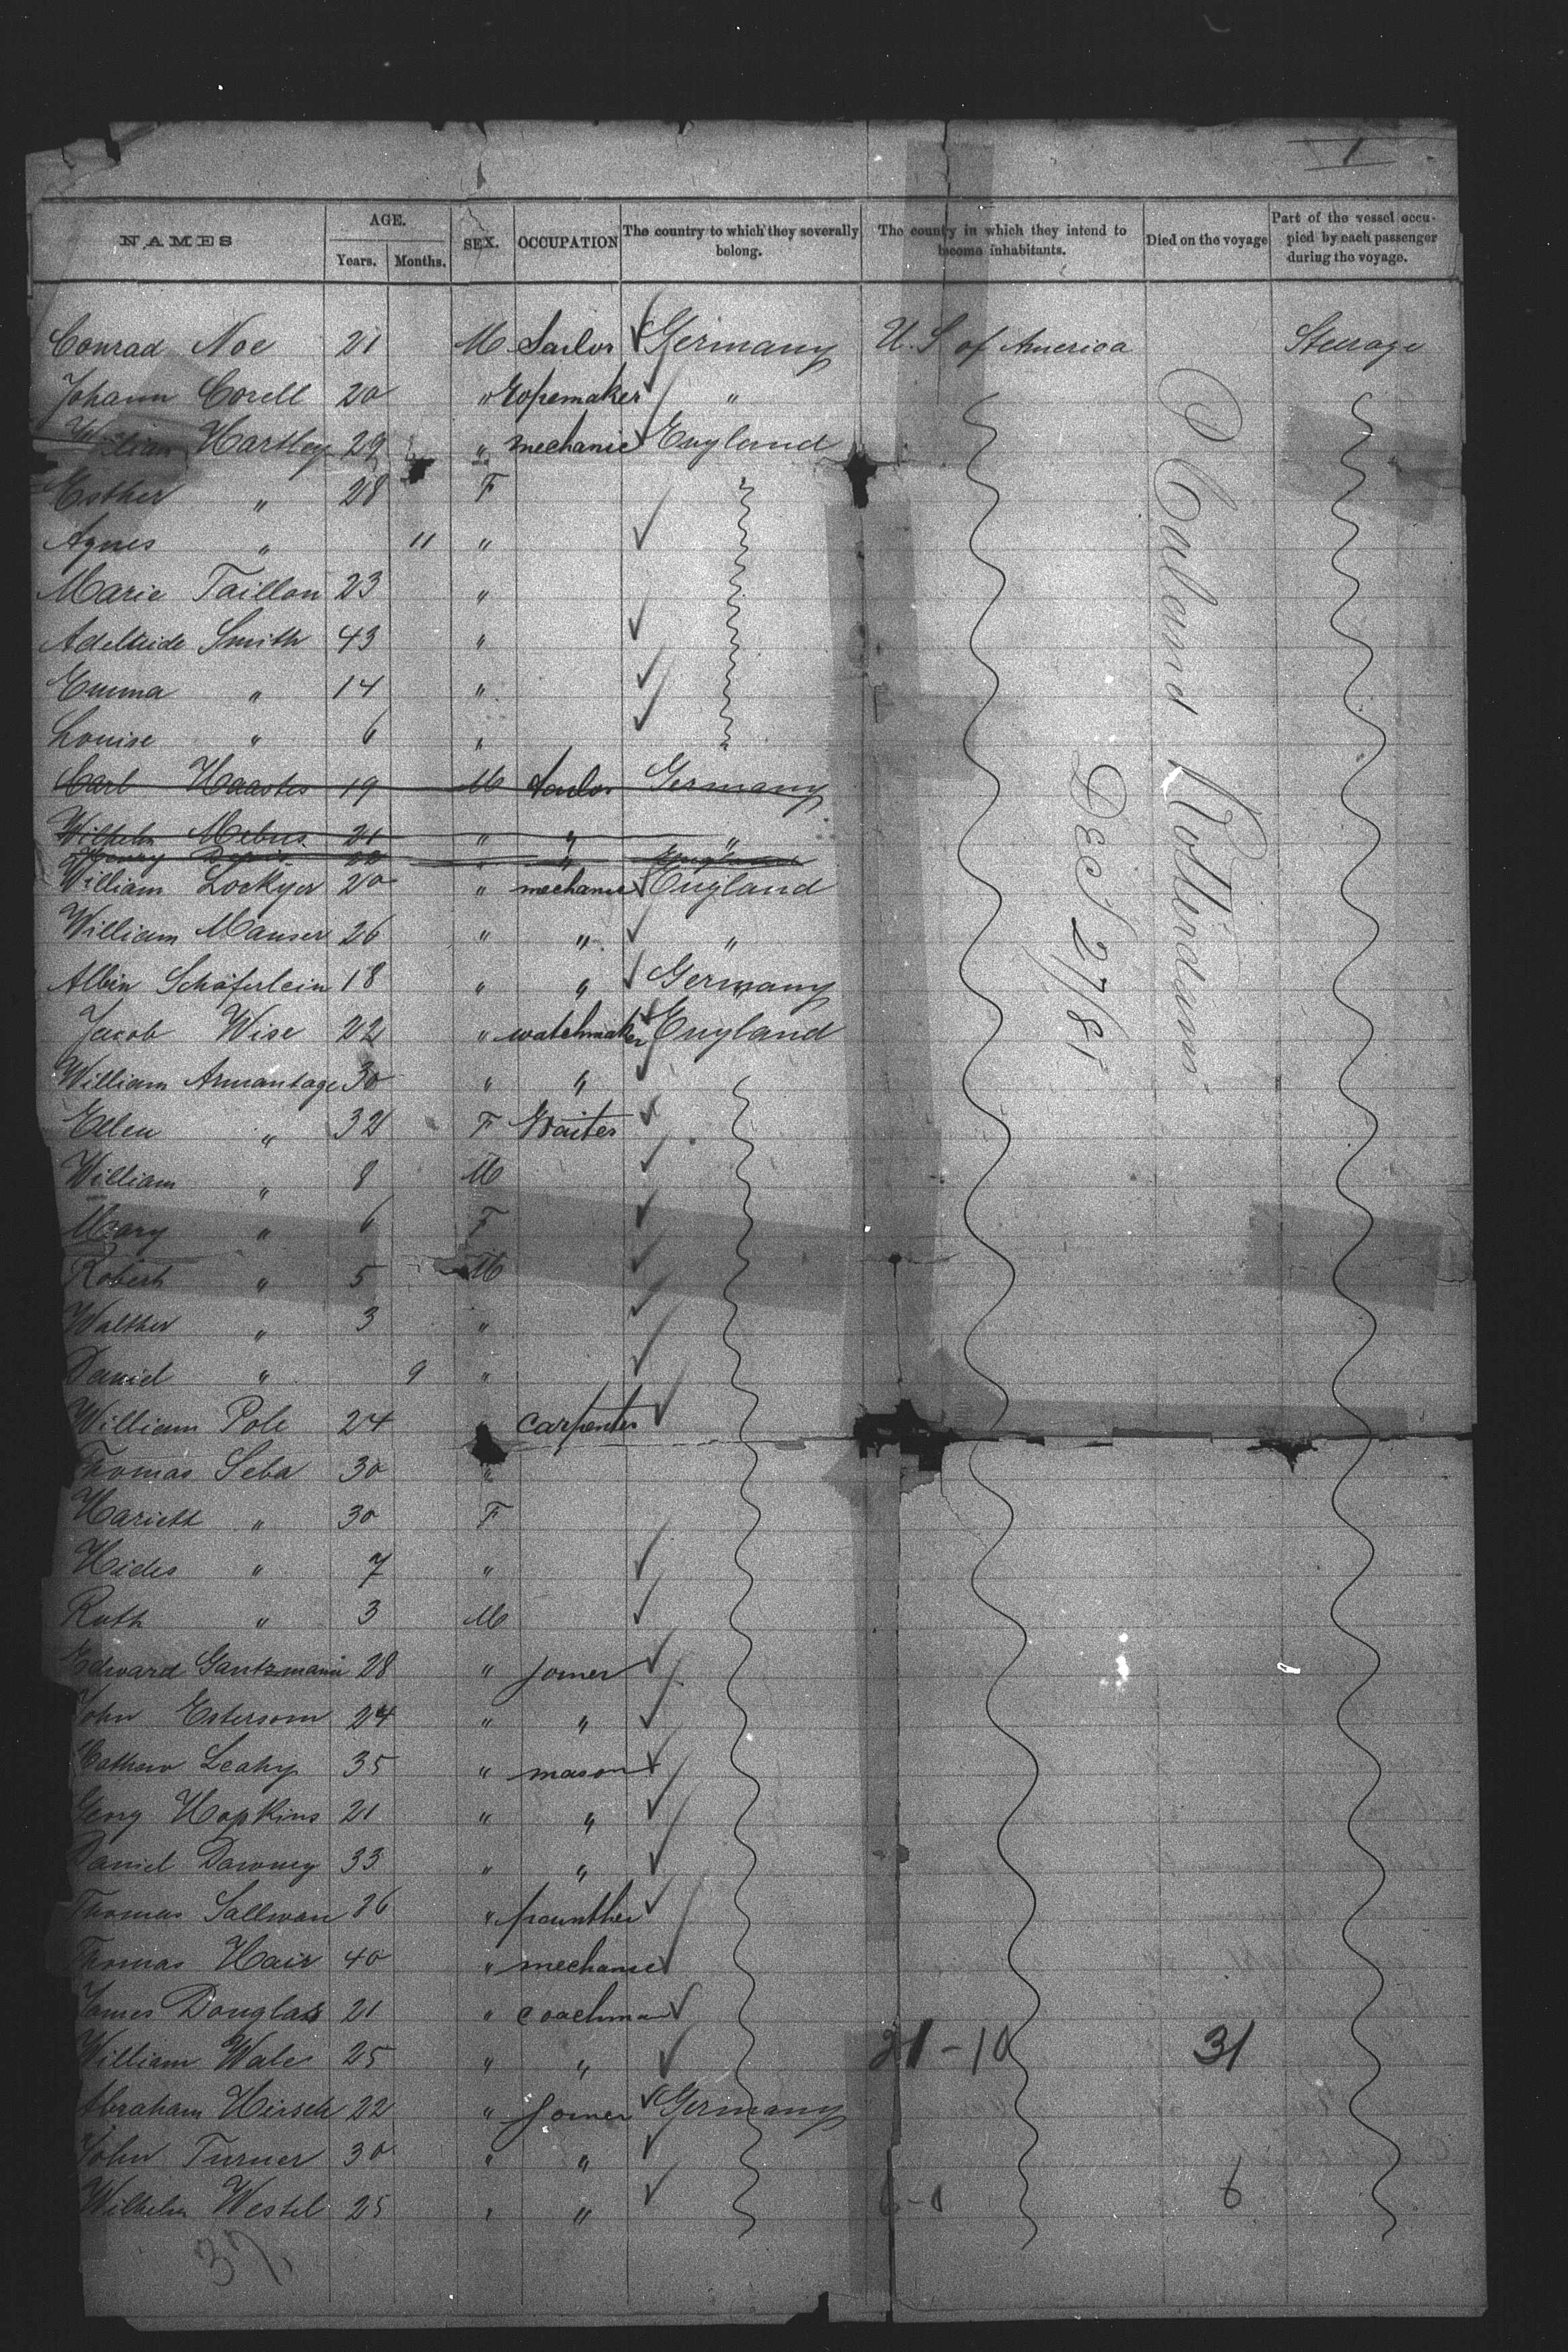 1
NAMES AGE. Years. Months. SEX. OCCUPATION The country to which they severally belong. The country in which they intend to become inhabitants. Died on the voyage Part of the vessel occupied by each passenger during the voyage.
Conrad Noe 21 M Sailor Germany U. S of America Steerage
Johann Corell 20 " Ropemaker "
William Hartley 29 " mechanic England
Esther " 28 F
Agnes " 11 "
Marie Taillon 23 "
Adelheide Smith 43 "
Emma " 14 "
Louise " 6 "
Carl Haastes 19 M Germany
Wilhelm Mebus 21 " " "
Henry 22 " " England
William Lockyer 20 " mechanic England
William Manser 26 " " "
Albin Schäferlein 18 " " Germany
Jacob Wise 22 " watchmaker England
William Armantage 30 " "
Ellen " 32 F Waiter
William " 8 M
Mary " 6 F
Robert " 5 M
Walther " 3 "
Daniel " 9 "
William Pole 24 " carpenter
Thomas Seba 30 "
Hariett " 30 F
Hides " 7 "
Ruth " 3 M
Edward Gantzmann 28 " Joiner
John Esterson 24 " "
Leahy 35 " mason
Georg Hopkins 21 " "
Daniel Downey 33 " "
Thomas Sallivan 26 "
Thomas Hair 40 " mechanic
James Douglass 21 " coachman
William Wales 25 " " 21-10 31
Abraham Hirsch 22 " Joiner Germany
John Turner 30 " "
Wilhelm Westel 25 " " 6-0 6
37
P Caland Rotterdam
Dec 27/81